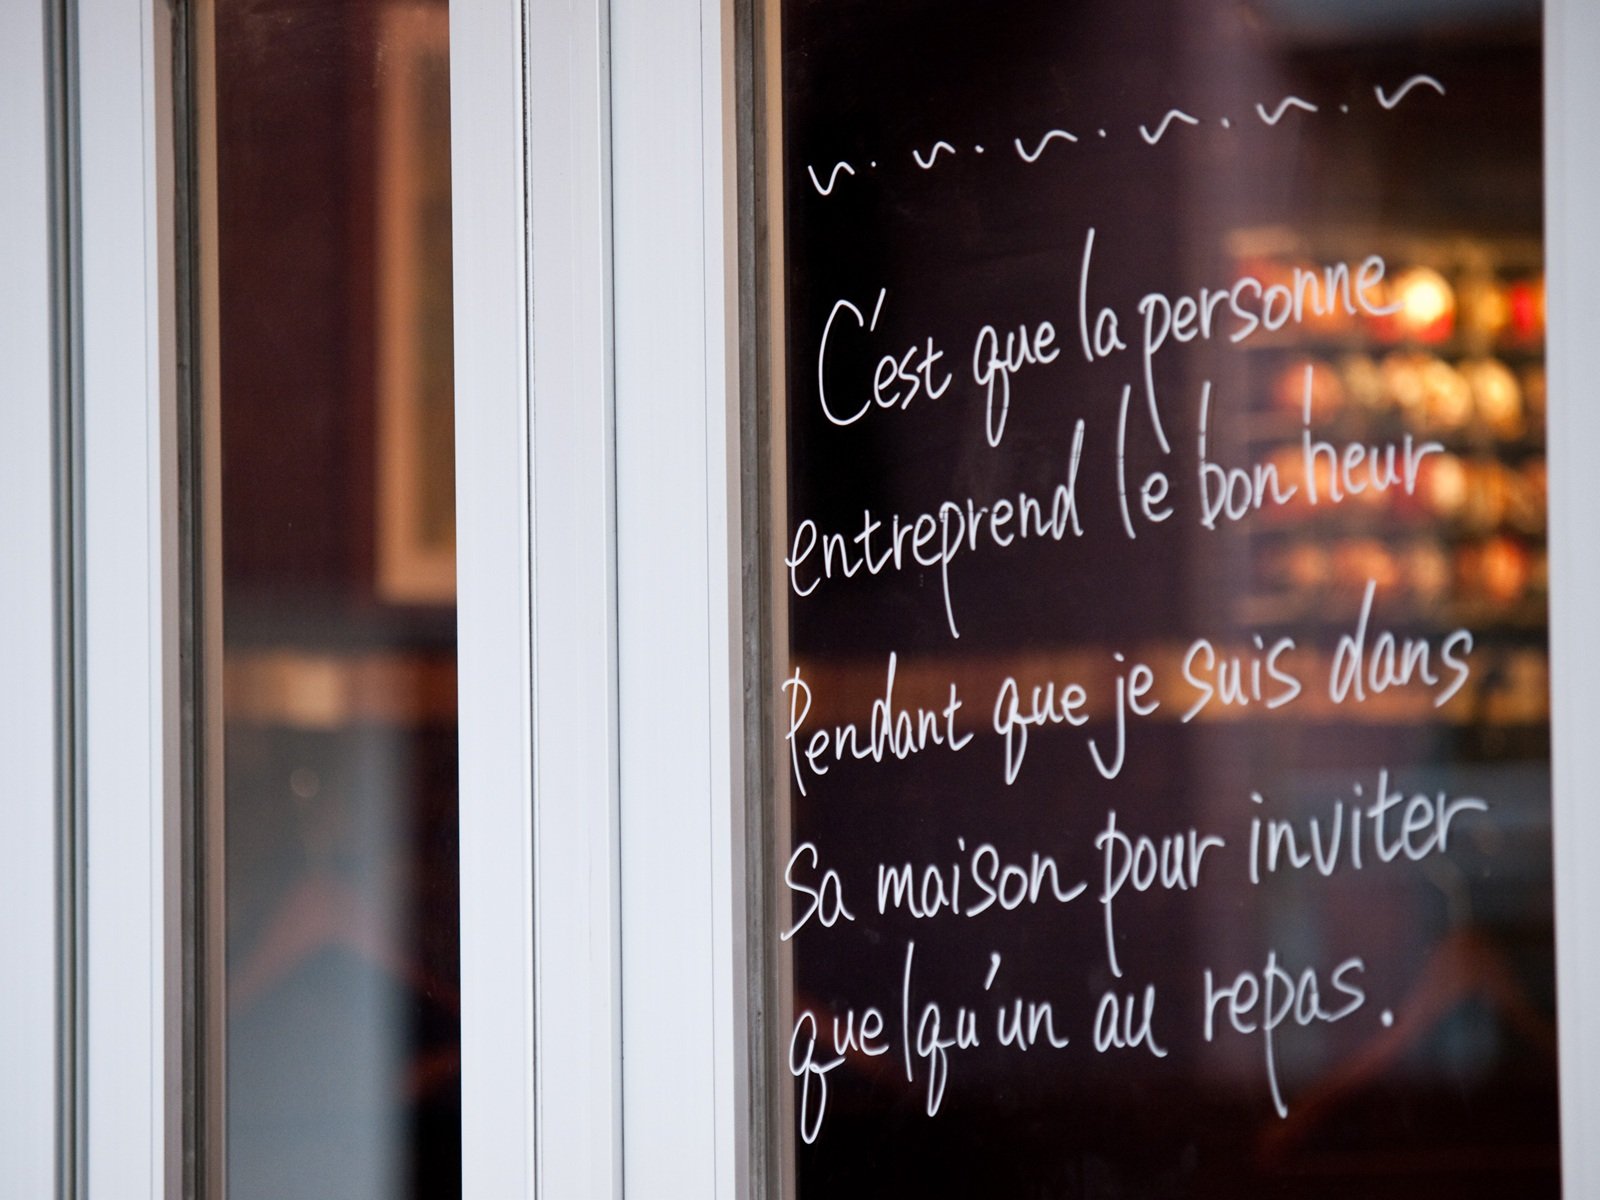 C'est que la personne
entreprend le bonheur
Pendant que je suis dans
Sa maison pour inviter
quelqu'un au repas.